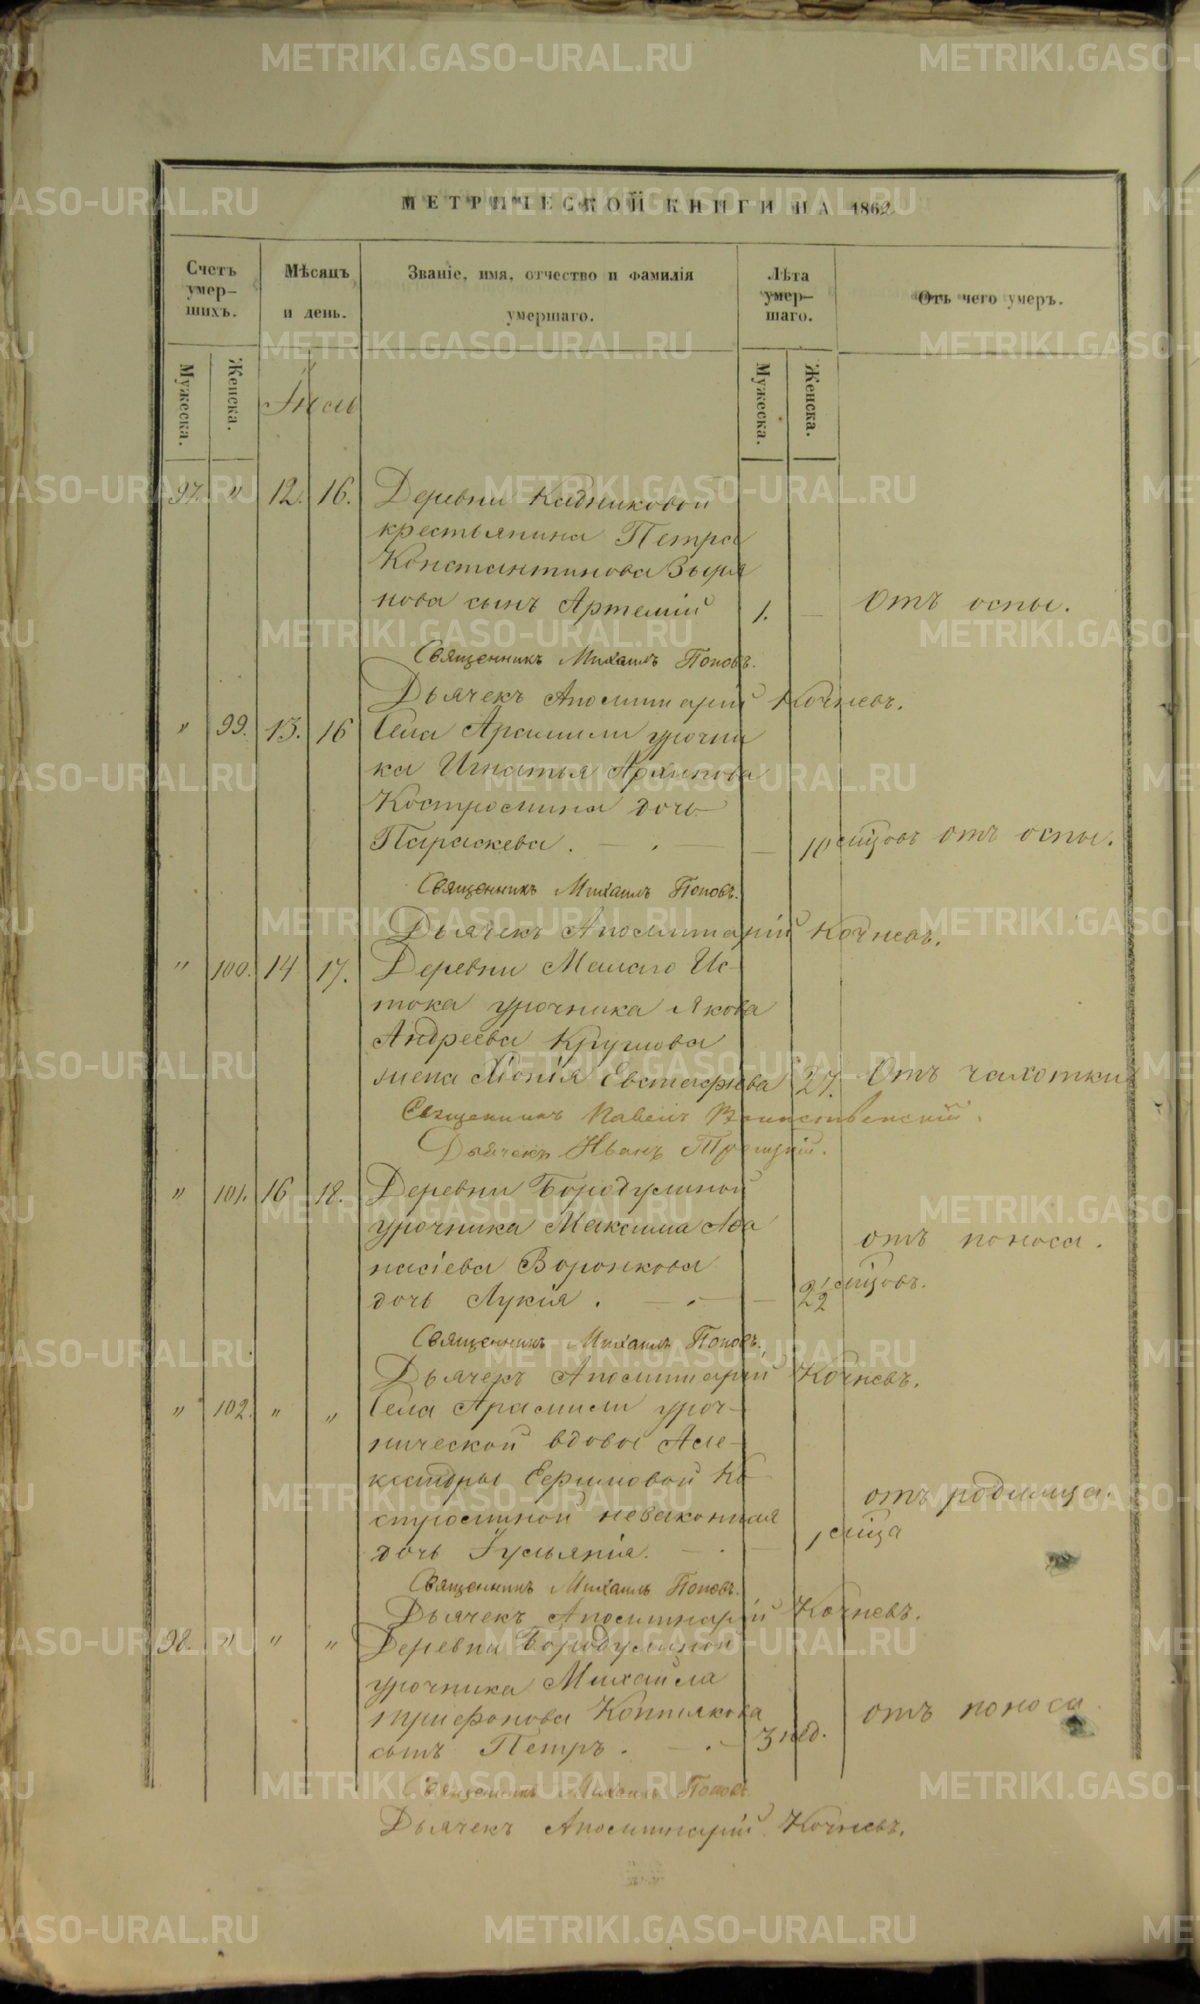 МЕТРИЧЕСКОЙ КНИГИ НА 1862
Счетъ умер-шихъ.
Мѣсяцъ и день.
Званіе, имя, отчество и фамилія умершаго.
Лѣта умер-шаго.
Отъ чего умеръ.
Мужеска.
Женска.
Мужеска.
Женска.
Іюль
97. " 12. 16. Деревни Кадниковой
крестьянина Петра
Константинова Выря
нова сынъ Артемій 1. — Отъ оспы.
Священникъ Михаилъ Поповъ.
Дьячекъ Аполлинарій Кочневъ.
" 99. 13. 16 Села Арамили урочни
ка Игнатья Архипова
Костромина дочь
Параскева. — 10 мцовъ отъ оспы.
Священникъ Михаилъ Поповъ.
Дьячекъ Аполлинарій Кочневъ.
" 100. 14 17. Деревни Малаго Ис-
тока урочника Якова
Андреева Круглова
жена Хіонія Евстафіева 27. Отъ чахотки
Священникъ Павелъ
Дьячекъ Иванъ Троицкій.
" 101. 16 18. Деревни Бородулиной
урочника Максима Афа
насіева Воронкова отъ поноса.
дочь Лукія. — 2 1/2 мцовъ.
Священникъ Михаилъ Поповъ.
Дьячекъ Аполлинарій Кочневъ.
" 102. " " Села Арамили уроч-
нической вдовы Але-
ксандры Ефимовой Ко
строминой незаконная отъ родимца.
дочь Іульянія. — 1 мца
Священникъ Михаилъ Поповъ.
Дьячекъ Аполлинарій Кочневъ.
98. " " " Деревни Бородулиной
урочника Михаила
Трифонова Коптякова отъ поноса.
сынъ Петръ. — 3 нед.
Священникъ Михаилъ Поповъ
Дьячекъ Аполлинарій Кочневъ.
METRIKI.GASO-URAL.RU